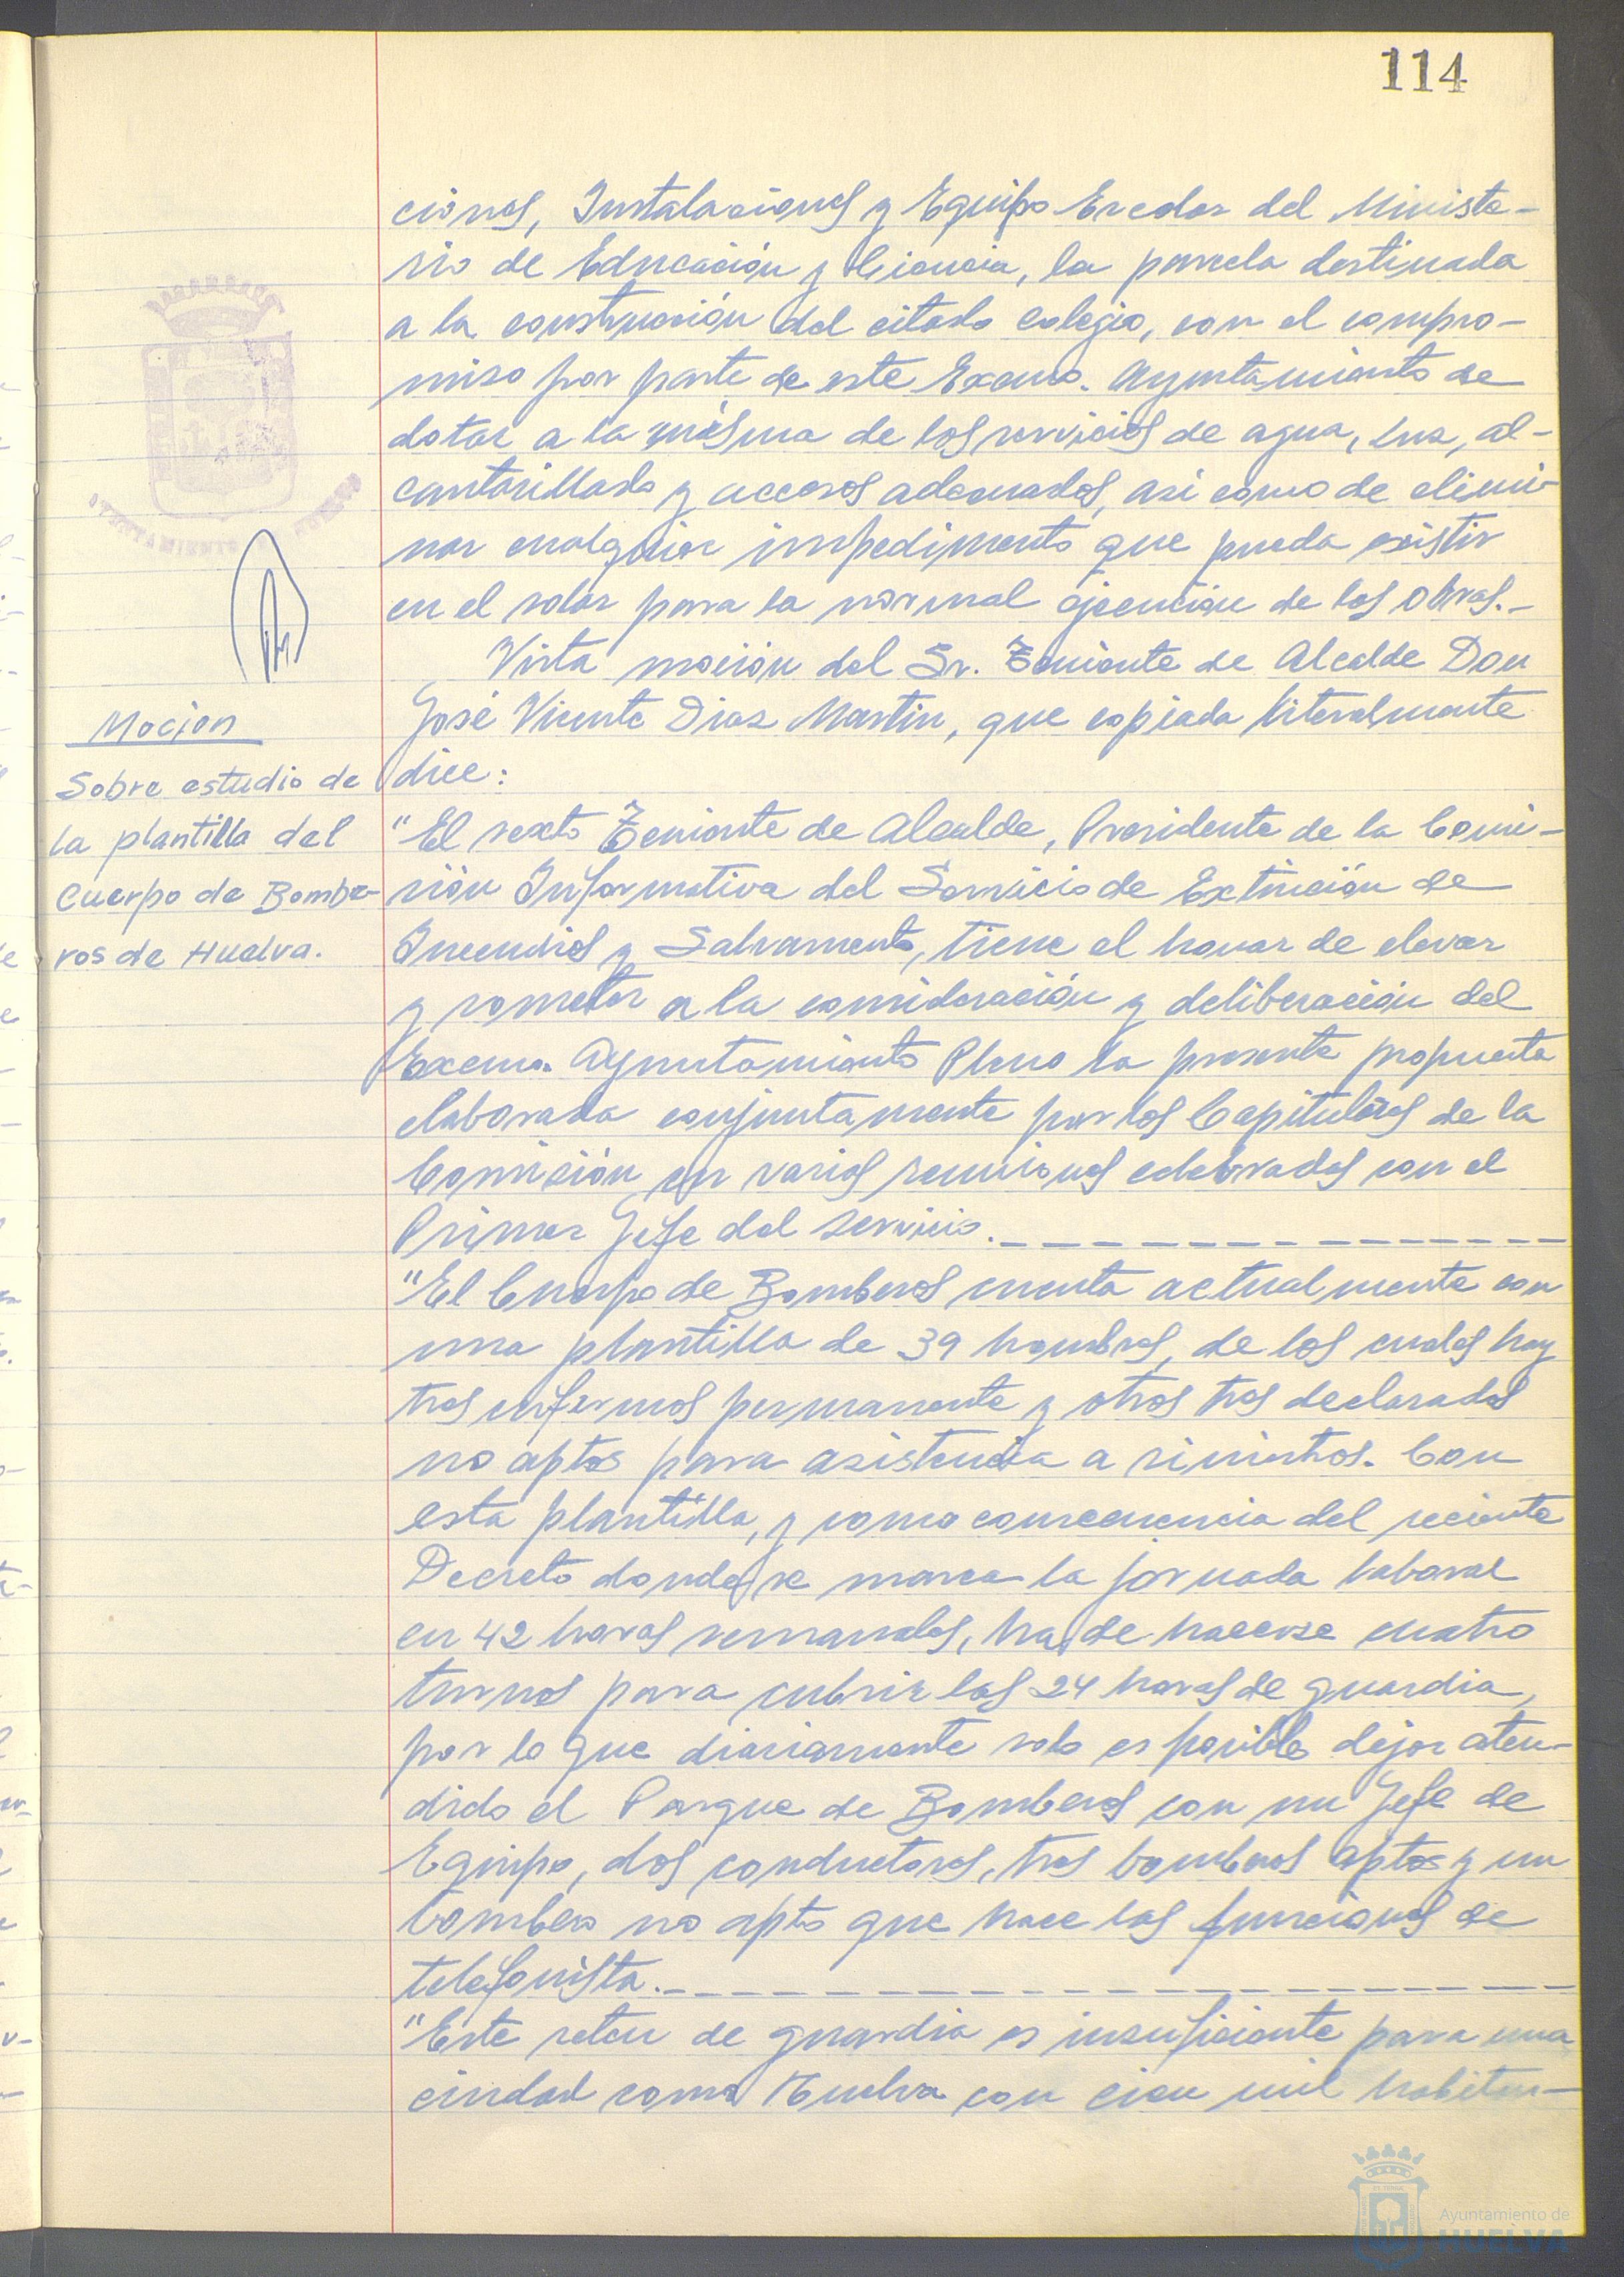 114
ciones, Instalaciones y Equipo Escolar del Ministe-
rio de Educación y Ciencia, la parcela destinada
a la construcción del citado colegio, con el compro-
miso por parte de este Excmo. Ayuntamiento de
dotar a la misma de los servicios de agua, luz, al-
cantarillado y accesos adecuados, así como de elimi-
nar cualquier impedimento que pueda existir
en el solar para la normal ejecución de las obras.-
Vista moción del Sr. Teniente de Alcalde Don
José Vicente Diaz Martin, que copiada literalmente
dice:
Mocion
Sobre estudio de
la plantilla del
Cuerpo de Bombe-
ros de Huelva.
"El sexto Teniente de Alcalde, Presidente de la Comi-
sión Informativa del Servicio de Extinción de
Incendios y Salvamento, tiene el honor de elevar
y someter a la consideración y deliberación del
Excmo. Ayuntamiento Pleno la presente propuesta
elaborada conjuntamente por los Capitulares de la
Comisión en varias reuniones celebradas con el
Primer Jefe del servicio.
"El Cuerpo de Bomberos cuenta actualmente con
una plantilla de 39 hombres, de los cuales hay
tres enfermos permanente y otros tres declarados
no aptos para asistencia a siniestros. Con
esta plantilla, y como consecuencia del reciente
Decreto donde se marca la jornada laboral
en 42 horas semanales, ha de hacerse cuatro
turnos para cubrir las 24 horas de guardia,
por lo que diariamente solo es posible dejar aten-
dido el Parque de Bomberos con un Jefe de
Equipo, dos conductores, tres bomberos aptos y un
bombero no apto que hace las funciones de
telefonista.
"Este reten de guardia es insuficiente para una
ciudad como Huelva con cien mil habitan-
Ayuntamiento de
HUELVA